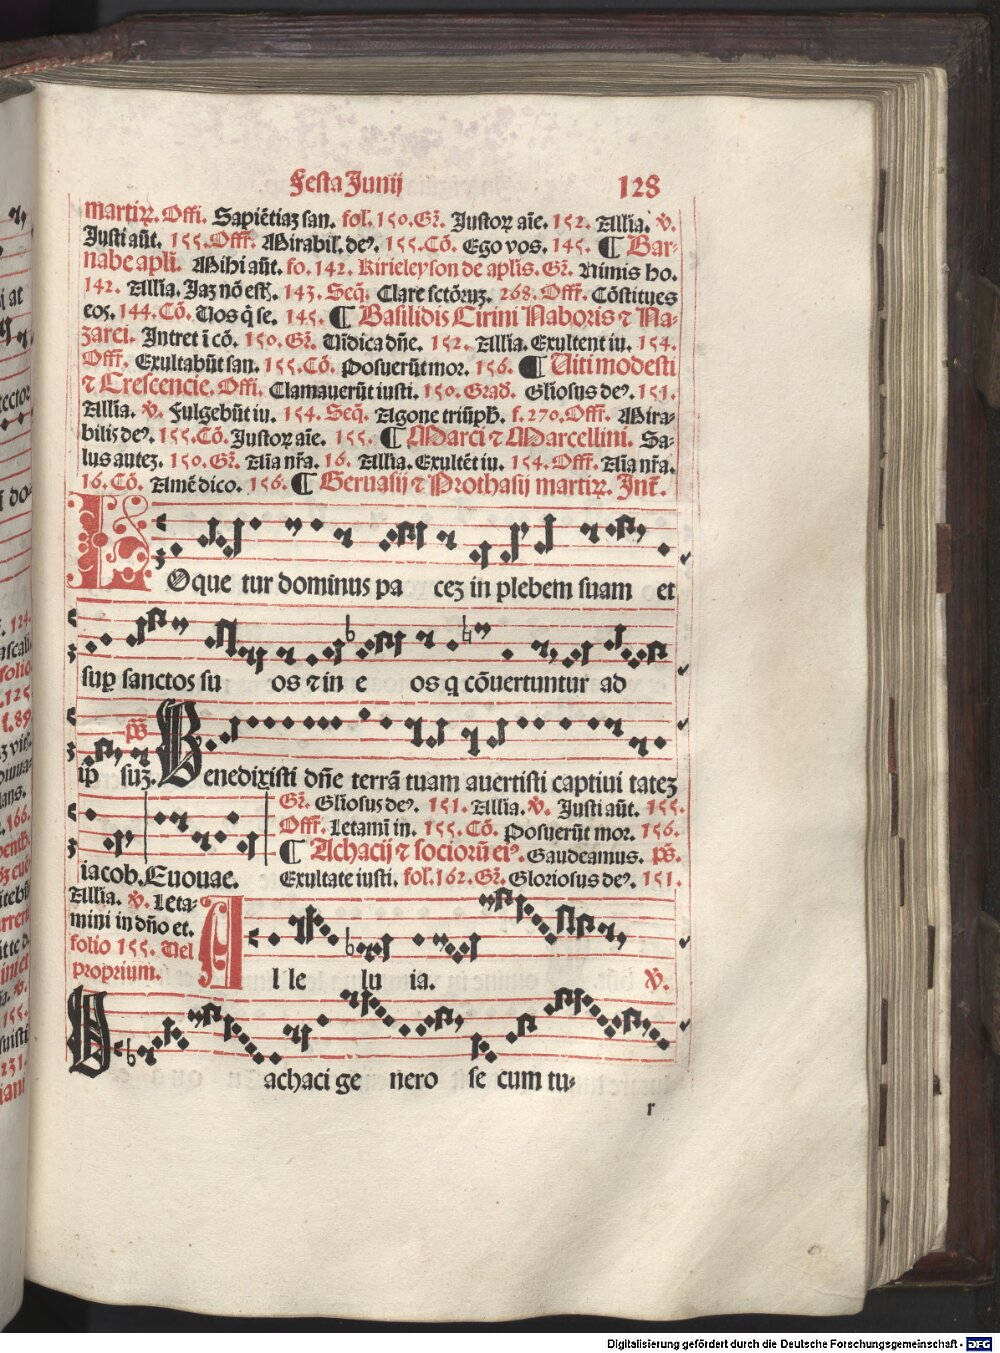 Festa Junij 128
martiꝝ. Offi. Sapiētiaz san. fol. 150. Gr̄. Justoꝝ aīe. 152. Allīa. ℣.
Justi aūt. 155. Off̄. Mirabil. de⁹. 155. Cō. Ego vos. 145. ¶ Bar-
nabe apli. Mihi aūt. fo. 142. Kirieleyson de aplis. Gr̄. Nimis ho.
142. Allīa. Jaz nō est. 143. Seq̄. Clare sctōruz. 268. Off̄. Cōstitues
eos. 144. Cō. Uos q̄ se. 145. ¶ Basilidis Cirini Naboris ⁊ Na-
zarei. Intret ī cō. 150. Gr̄. Uīdica dn̄e. 152. Allīa. Exultent iu. 154.
Off̄. Exultabūt san. 155. Cō. Posuerūt mor. 156. ¶ Uiti modesti
⁊ Crescencie. Offi. Clamauerūt iusti. 150. Grad̄. Glīosus de⁹. 151.
Allīa. ℣. Fulgebūt iu. 154. Seq̄. Agone triūph̄. f. 270. Off̄. Mira-
bilis de⁹. 155. Cō. Justoꝝ aīe. 155. ¶ Marci ⁊ Marcellini. Sa-
lus autez. 150. Gr̄. Aīa nr̄a. 16. Allīa. Exultēt iu. 154. Off̄. Aīa nr̄a.
16. Cō. Amē dico. 156. ¶ Geruasij ⁊ Prothasij martiꝝ. Int̄.
LOque tur dominus pa cez in plebem suam et
suꝑ sanctos su os ⁊ in e os q cōuertuntur ad
ip suz. p̄s̄ Benedixisti dn̄e terrā tuam auertisti captiui tatez
Gr̄. Glīosus de⁹. 151. Allīa. ℣. Justi aūt. 155.
Off̄. Letamī in. 155. Cō. Posuerūt mor. 156.
¶ Achacij ⁊ sociorū ei⁹. Gaudeamus. p̄s̄.
iacob. Euouae. Exultate iusti. fol. 162. Gr̄. Gloriosus de⁹. 151.
Allīa. ℣. Leta-
mini in dn̄o et.
folio 155. Uel
proprium.
Al le lu ia. ℣.
achaci ge nero se cum tu-
r
Digitalisierung gefördert durch die Deutsche Forschungsgemeinschaft - DFG